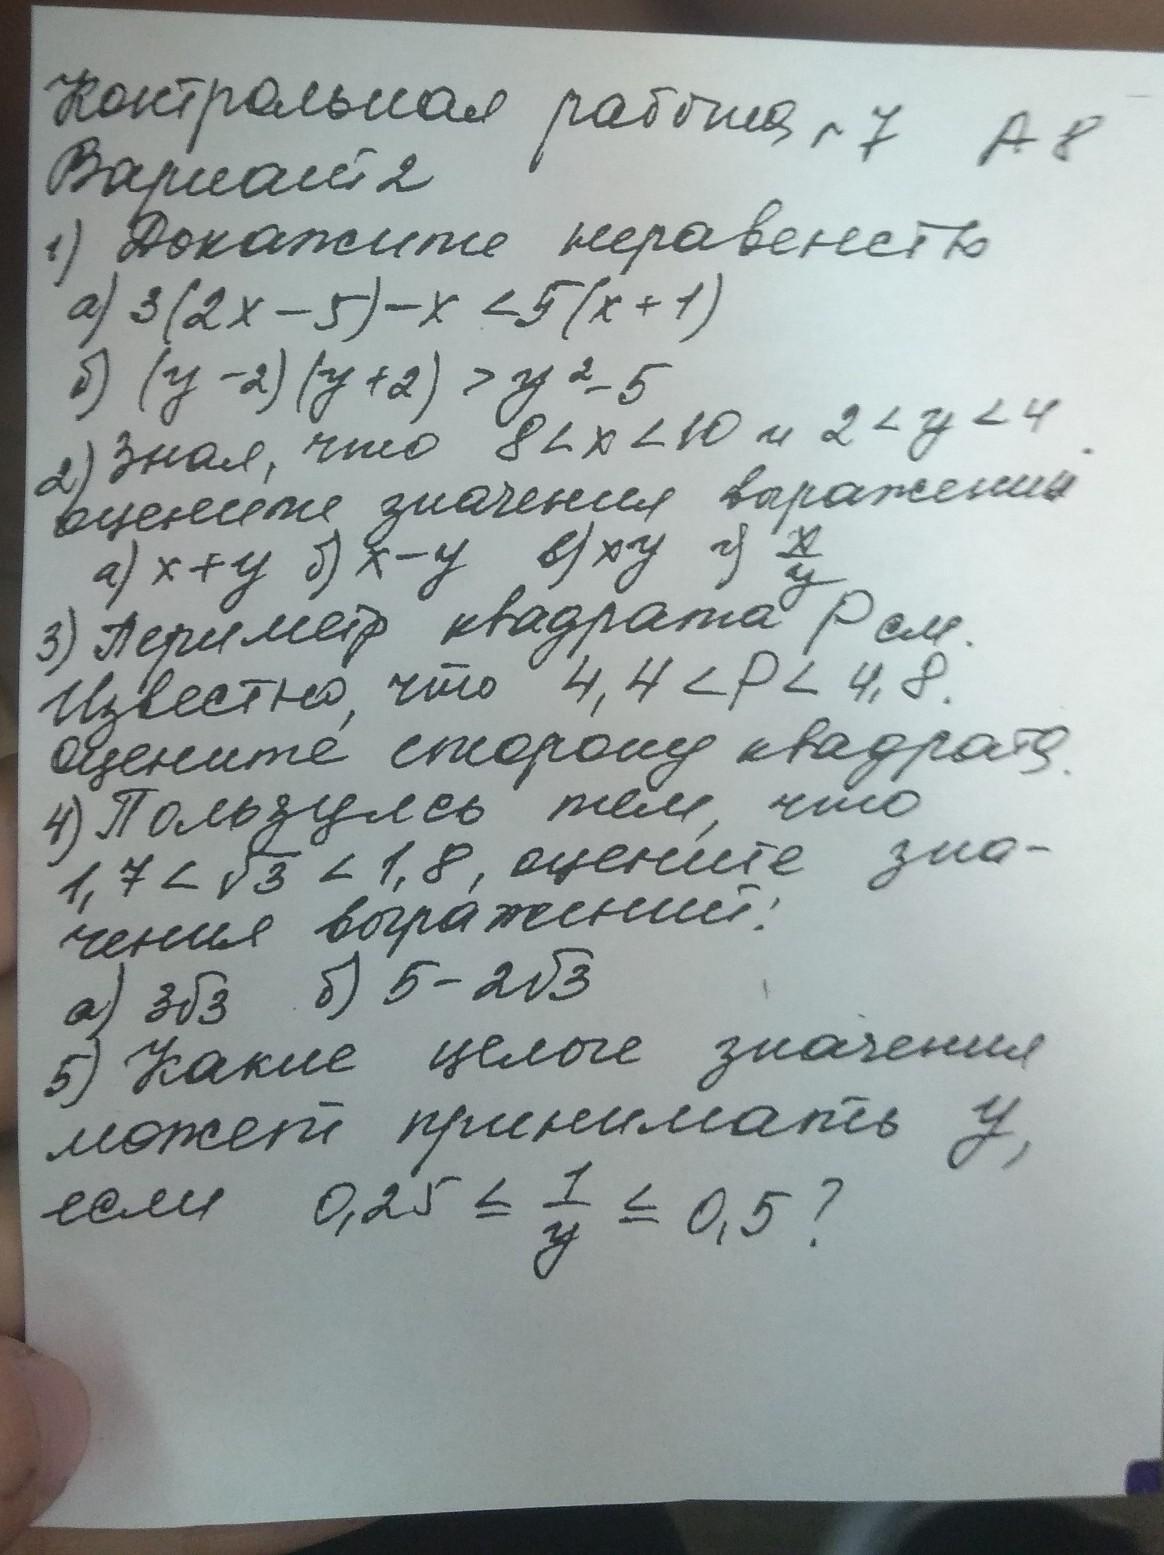 Контрольная работа №7 А 8
Вариант 2
1) Докажите неравенство
а) 3(2x - 5) - x < 5(x + 1)
б) (y - 2)(y + 2) > y² - 5
2) Зная, что 8 < x < 10 и 2 < y < 4.
оцените значения выражений
а) x + y б) x - y в) xy г) x/y
3) Периметр квадрата P см.
Известно, что 4,4 < P < 4,8.
Оцените сторону квадрата.
4) Пользуясь тем, что
1,7 < √3 < 1,8, оцените зна-
чения выражений:
а) 3√3 б) 5 - 2√3
5) Какие целые значения
может принимать y,
если 0,25 ≤ 1/y ≤ 0,5?